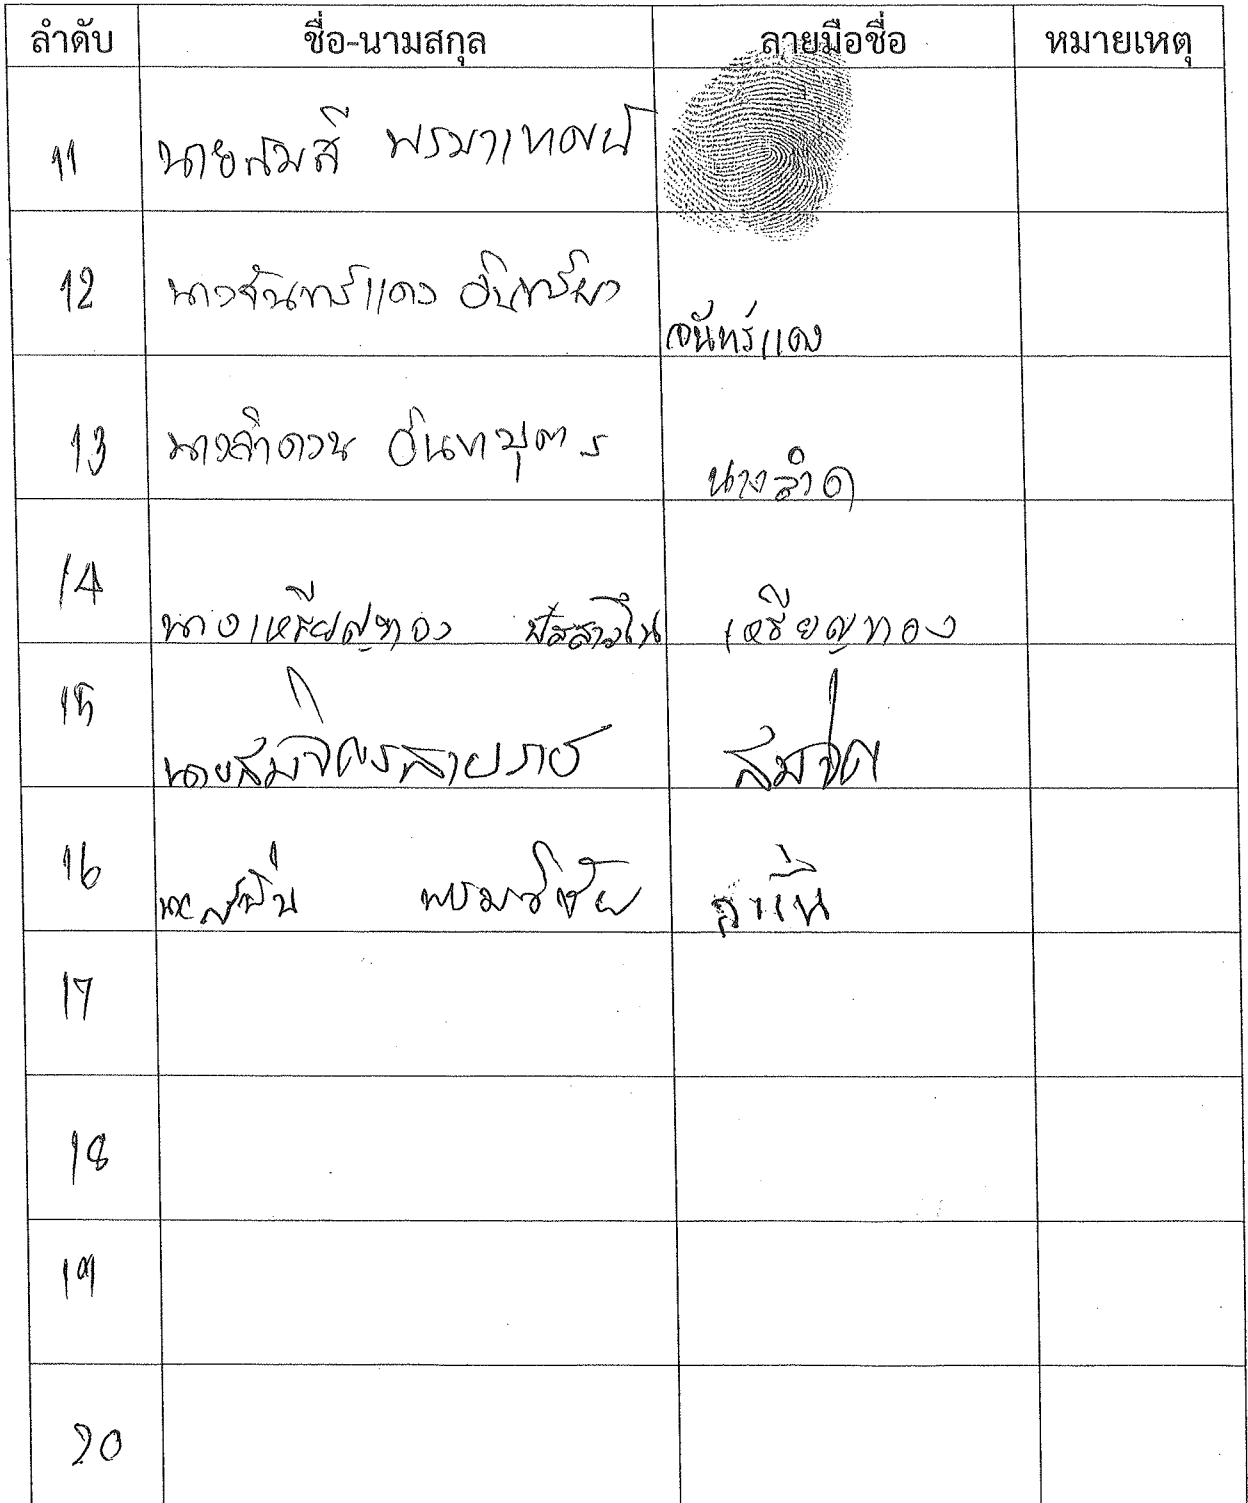 ลำดับ ชื่อ-นามสกุล ลายมือชื่อ หมายเหตุ
11 นายสมสี
12 นางจันทร์แดง อินทรีย์ จันทร์แดง
13 นางลำดวน อินทบุตร นางลำด
14 นางเหรียญทอง เหรียญทอง
15 นายสมจิตร สายราช สมจิต
16 พรมวิชัย
17
18
19
20